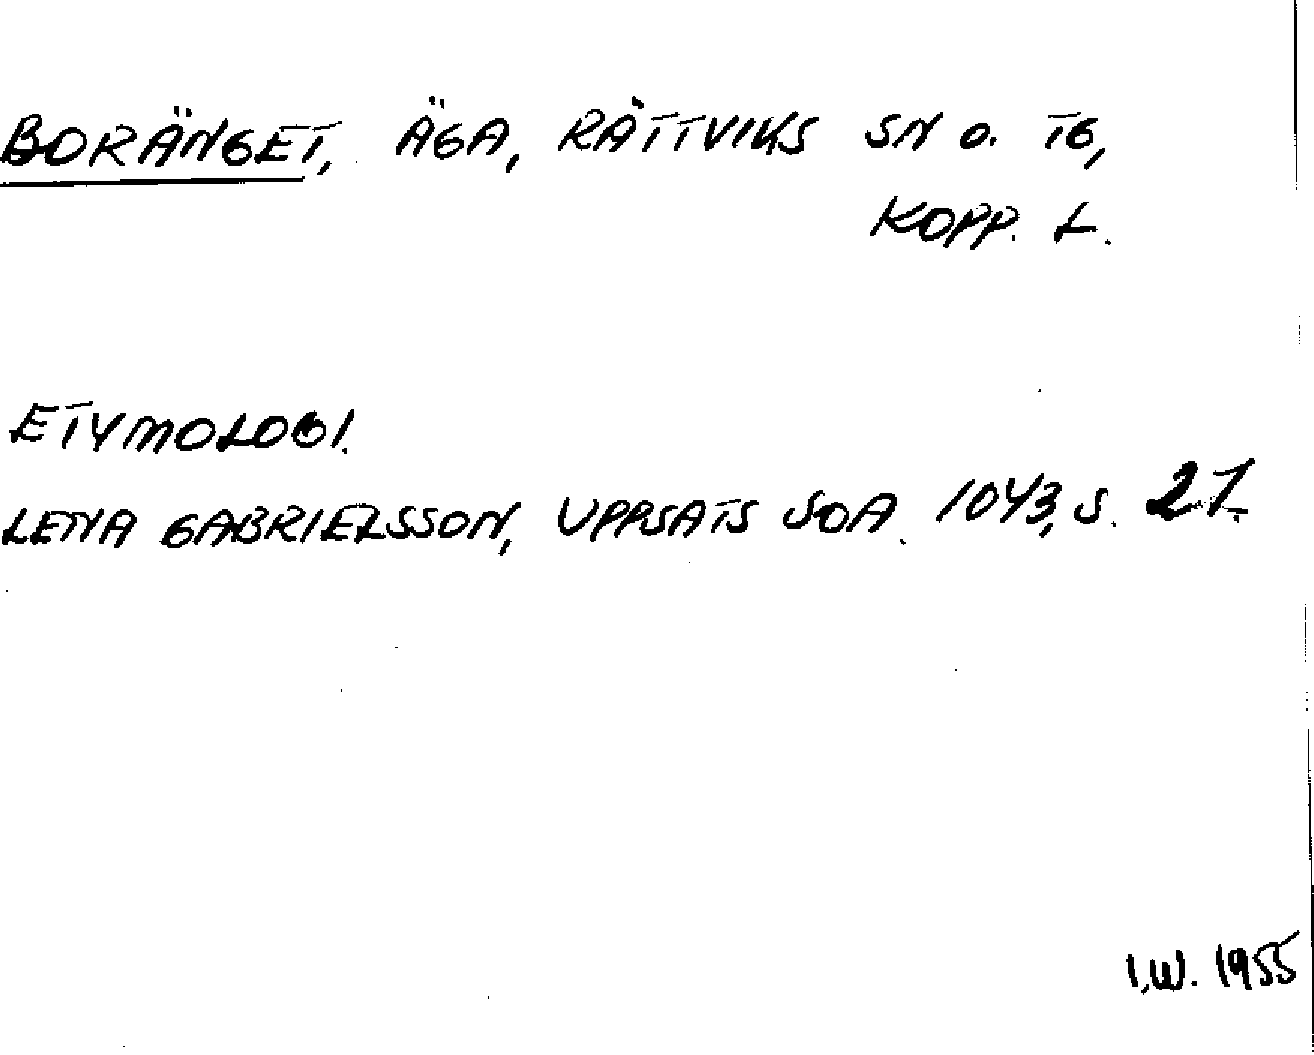 BORÄNGET, ÄGA, RÄTTVIKS SN O. TG,
KOPP. L.
ETYMOLOGI.
LENA GABRIELSSON, UPPSATS SOA. 1043, S. 21.
I.W. 1955